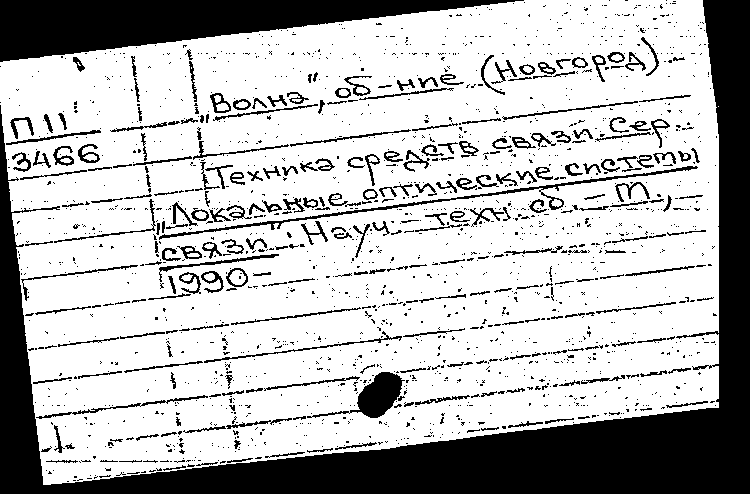 П 11
3466
"Волна", об-ние (Новгород) -
Техника средств связи. Сер.
"Локальные оптические системы
связи": Науч.-техн. сб. - М.,
1990-